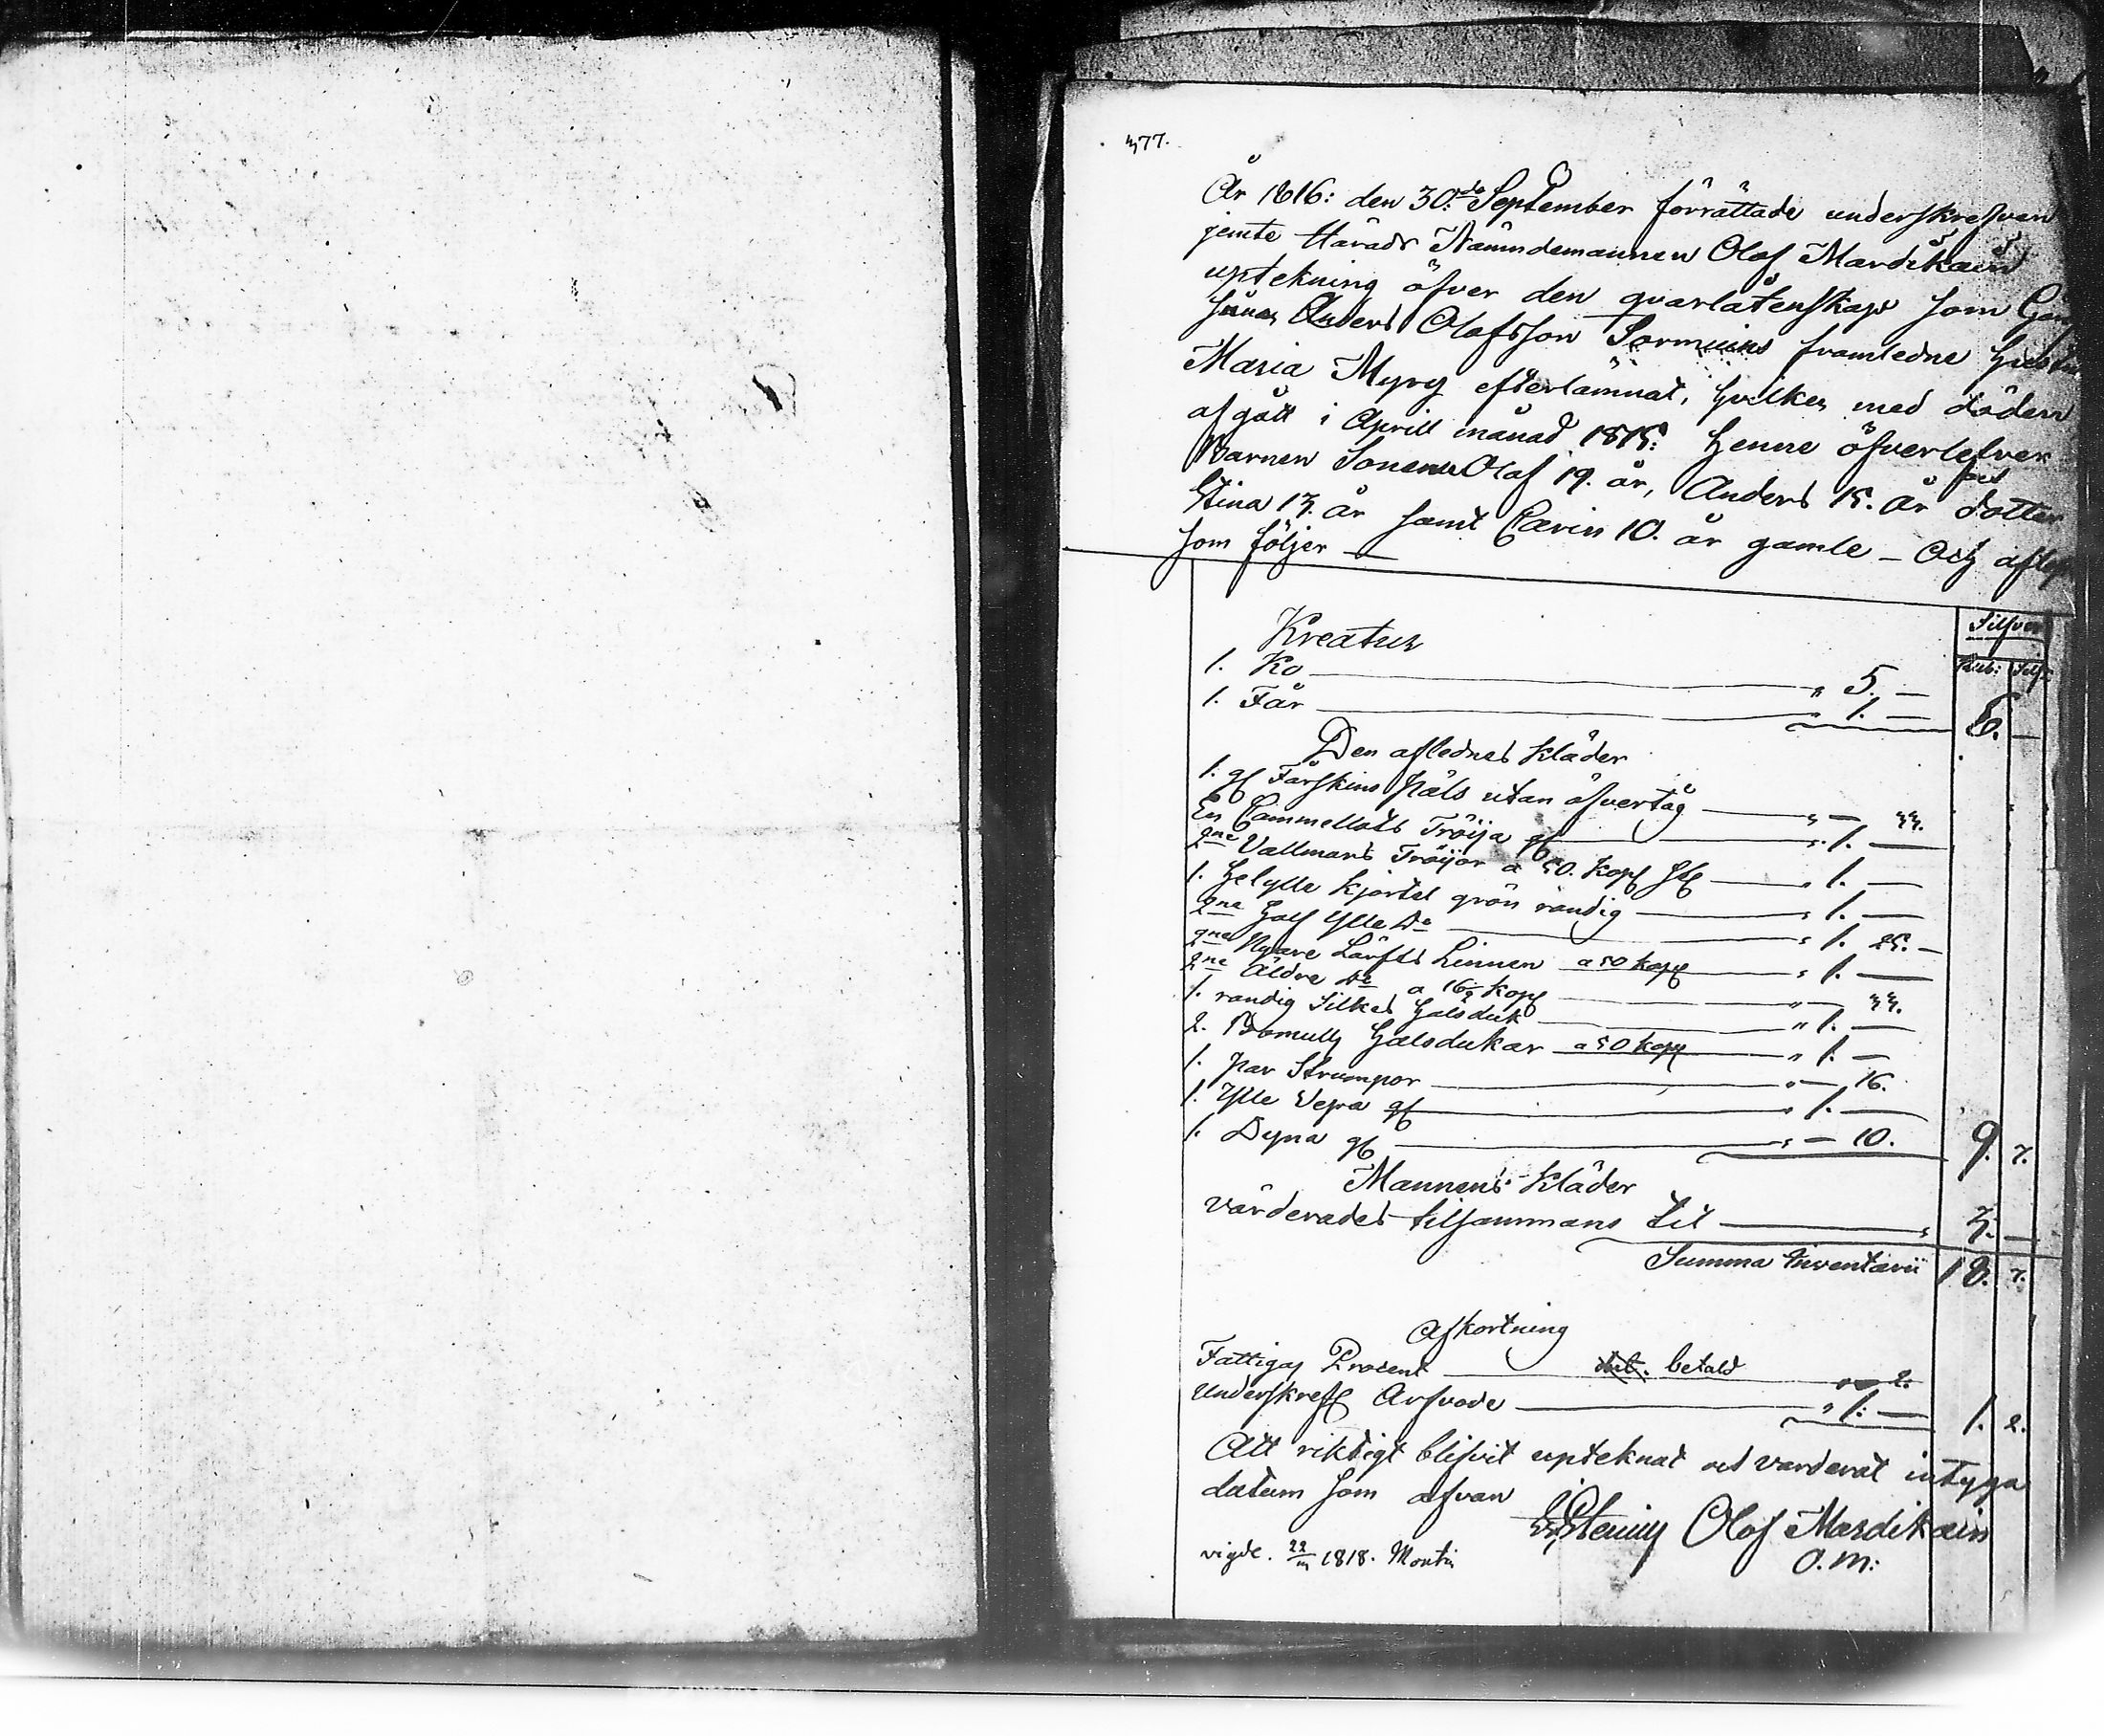 377.
År 1816: den 30:de September förrättade underskrefven
jemte Härads Nämndemannen Olof Mardikain
uptekning öfver den qvarlåtenskap som
Anders Olofsson Sormuins framledne Hustru
Maria Myrg efterlämnat, hvilken med döden
afgått i Aprill månad 1815: henne öfverlefver
Barnen Sönerne Olof 19. år, Anders 15. år dotter
Stina 13. år samt Carin 10. år gamle – Och
som följer —
Silfver
Kreatur
Rub: Silf:
1. Ko — " 5. —
1. Får — " 1. — 6. —
Den aflednes kläder
1. gl Fårskins päls utan öfvertåg — " — 33.
En Cammellots Tröija gl — " 1. —
2ne Vallmars Tröijor a 50. Kop st — " 1. —
1. helylle kjortel grön randig — " 1. —
2ne half ylle Do — " 1. 25. —
2ne Nyare Lärfts Linnen a 50 kop — " 1. —
2ne Äldre Do a 16½ kop — " — 33.
1. randig Silkes halsduk — " 1. —
2. Bomulls halsdukar a 50 kop — " 1. —
1. par Strumpor — " — 16.
1. Ylle Vepa gl — " 1. —
1. Dyna gl — " — 10. 9. 7.
Mannens kläder
värderades tilsammans til — " 3. —
Summa Inventarii 18. 7.
Afkortning
Fattigas Procent — betald " — 2.
Underskrefs Arfvode — " 1: — 1. 2.
Att riktigt blifvit upteknat och värderat intyga
datum som ofvan
Olof Mardikain
O. M:
vigde. 22/m 1818. Montin